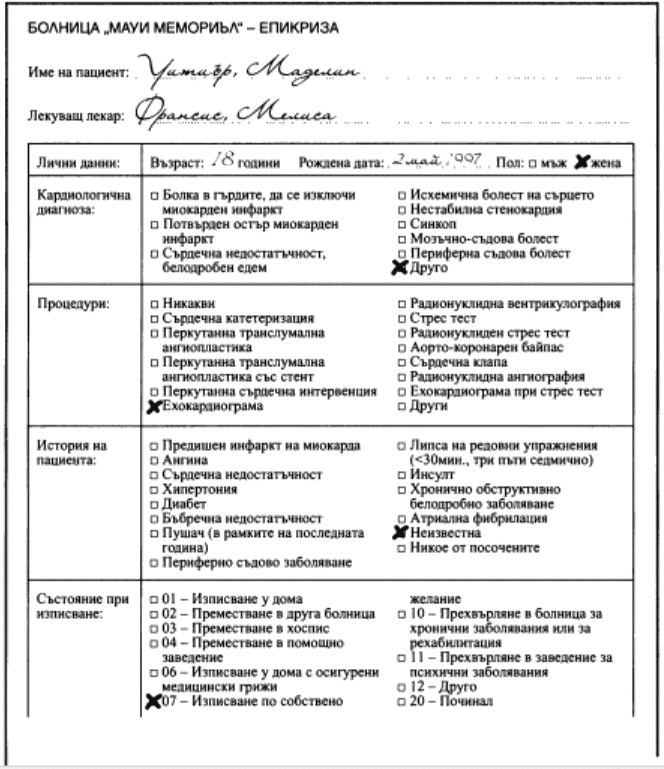 БОЛНИЦА „МАУИ МЕМОРИЪЛ“ – ЕПИКРИЗА
Име на пациент: Уитиър, Маделин
Лекуващ лекар: Франсис, Мелиса
Лични данни: Възраст: 18 години Рождена дата: 2 май, 1997 Пол: □ мъж ✖ жена
Кардиологична диагноза:
□ Болка в гърдите, да се изключи
миокарден инфаркт
□ Потвърден остър миокарден
инфаркт
□ Сърдечна недостатъчност,
белодробен едем
□ Исхемична болест на сърцето
□ Нестабилна стенокардия
□ Синкоп
□ Мозъчно-съдова болест
□ Периферна съдова болест
✖ Друго
Процедури:
□ Никакви
□ Сърдечна катетеризация
□ Перкутанна транслумална
ангиопластика
□ Перкутанна транслумална
ангиопластика със стент
□ Перкутанна сърдечна интервенция
✖ Ехокардиограма
□ Радионуклидна вентрикулография
□ Стрес тест
□ Радионуклиден стрес тест
□ Аорто-коронарен байпас
□ Сърдечна клапа
□ Радионуклидна ангиография
□ Ехокардиограма при стрес тест
□ Други
История на
пациента:
□ Предишен инфаркт на миокарда
□ Ангина
□ Сърдечна недостатъчност
□ Хипертония
□ Диабет
□ Бъбречна недостатъчност
□ Пушач (в рамките на последната
година)
□ Периферно съдово заболяване
□ Липса на редовни упражнения
(<30мин., три пъти седмично)
□ Инсулт
□ Хронично обструктивно
белодробно заболяване
□ Атриална фибрилация
✖ Неизвестна
□ Никое от посочените
Състояние при
изписване:
□ 01 – Изписване у дома
□ 02 – Преместване в друга болница
□ 03 – Преместване в хоспис
□ 04 – Преместване в помощно
заведение
□ 06 – Изписване у дома с осигурени
медицински грижи
✖ 07 – Изписване по собствено
желание
□ 10 – Прехвърляне в болница за
хронични заболявания или за
рехабилитация
□ 11 – Прехвърляне в заведение за
психични заболявания
□ 12 – Друго
□ 20 – Починал